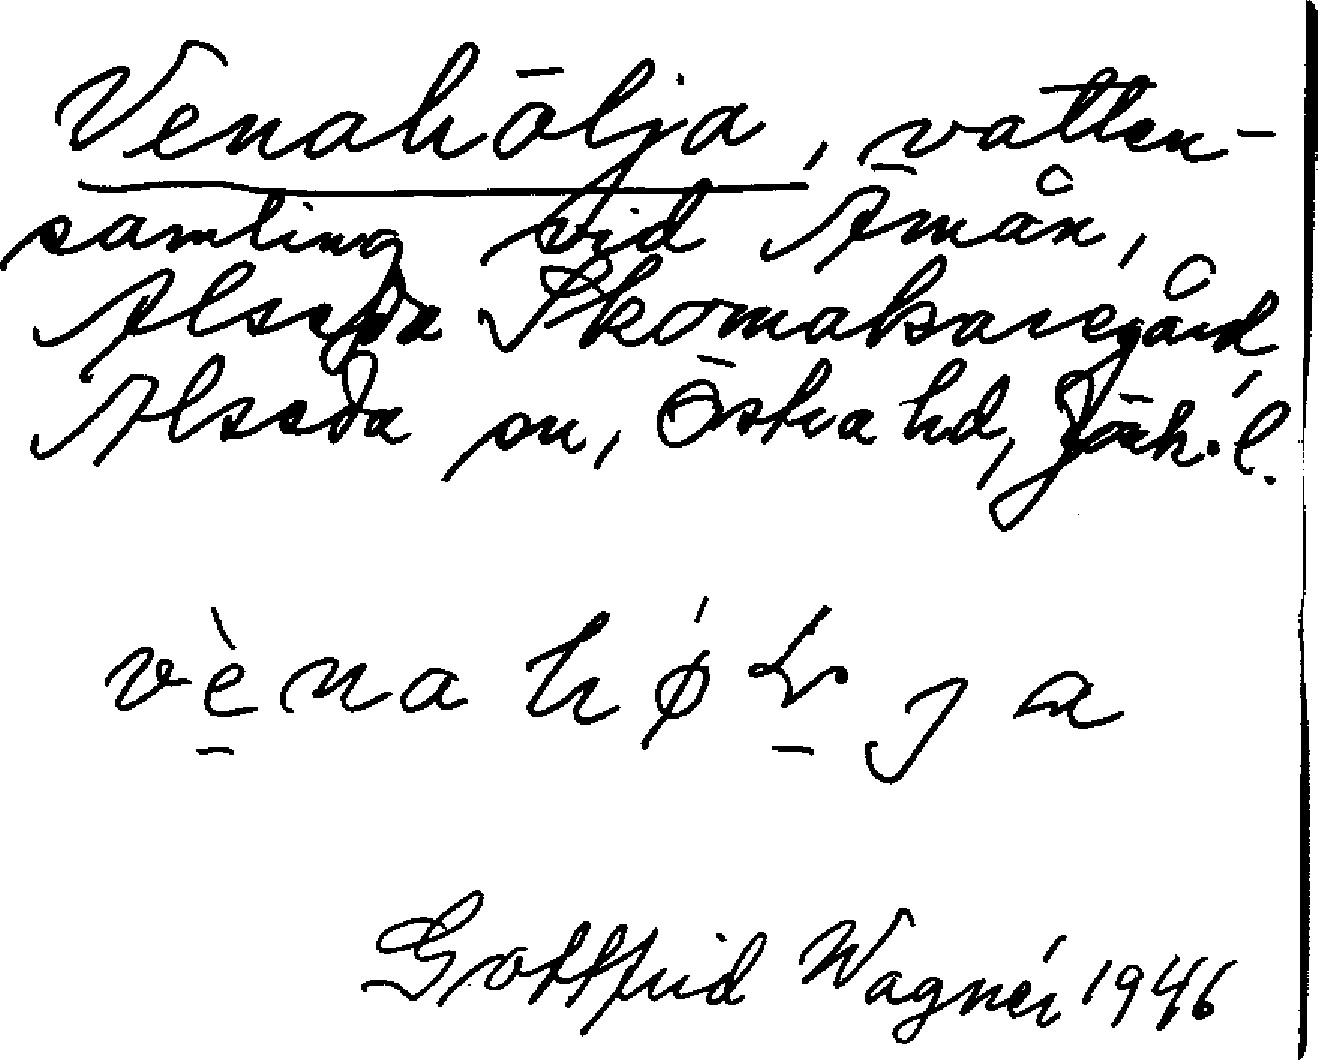 Venahölja, vatten-
samling vid Ämån,
Alseda Skomakaregård,
Alseda sn, Östra hd, Jönk. l.
vènahølja
Gottfrid Wagnér 1946